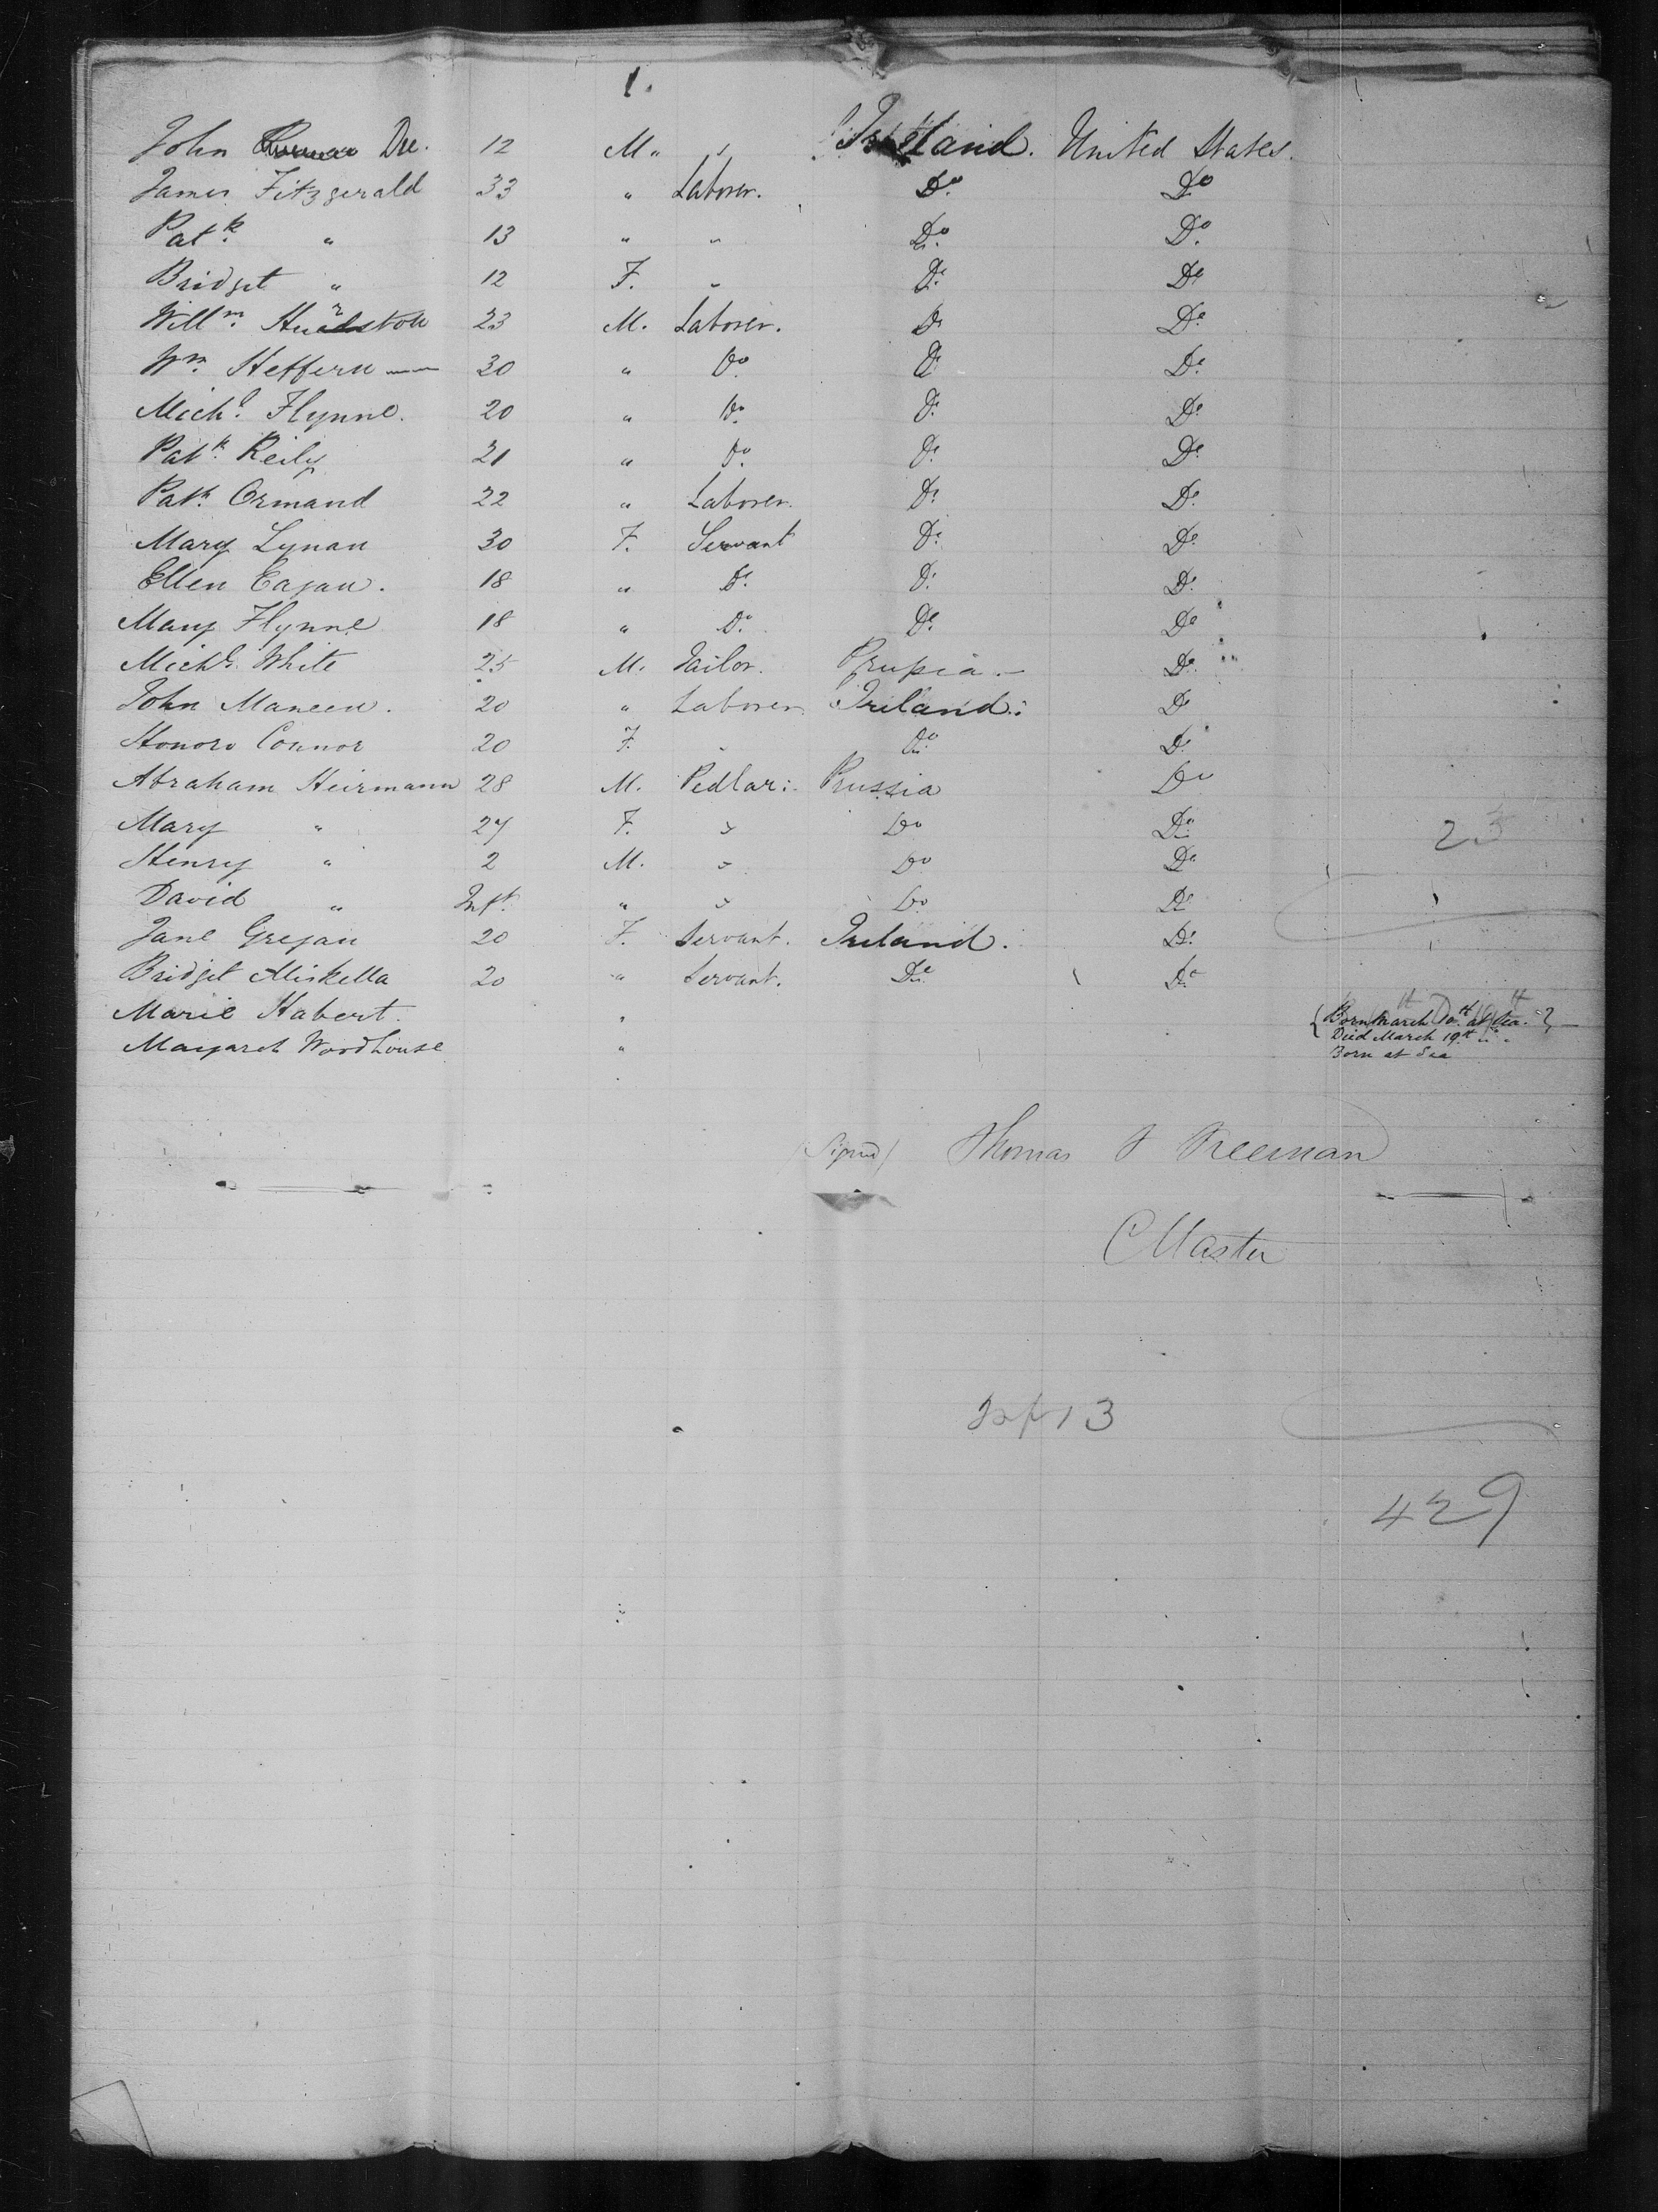 1.
John Dee. 12 M. " Ireland. United States.
James Fitzgerald 33 " Laborer. Do. Do
Patk. " 13 " " Do. Do.
Bridget " 12 F. " Do. Do
Willm. 23 M. Laborer. Do Do.
Wm. Heffern 30 " Do. Do Do.
Michl. Flynne. 20 " Do. Do. Do.
Patk. Reily 21 " Do. Do. Do.
Patk. Ormand 22 " Laborer. Do. Do.
Mary Lynan 30 F. Servant Do. Do.
Ellen Eagan. 18 " Do. Do. Do.
Mary Flynne 18 " Do. Do. Do
Michl. White 25 M. Tailor. Prussia. Do.
John Maneen. 20 " Laborer Ireland. Do
Honoro Connor 20 F. " Do. Do.
Abraham Heirmann 28 M. Pedlar: Prussia Do
Mary " 27 F. " Do Do.
23
Henry " 2 M. " Do Do.
David " Inft. " " Do. Do
Jane Gregan 20 F. Servant. Ireland. Do.
Bridget Miskella 20 " Servant. Do. Do.
Marie Habert. " { Born March 10th at Sea.
Died March 19th " "
Margaret Woodhouse " Born at Sea
(Signed) Thomas F Freeman
Master
Inft 13
429